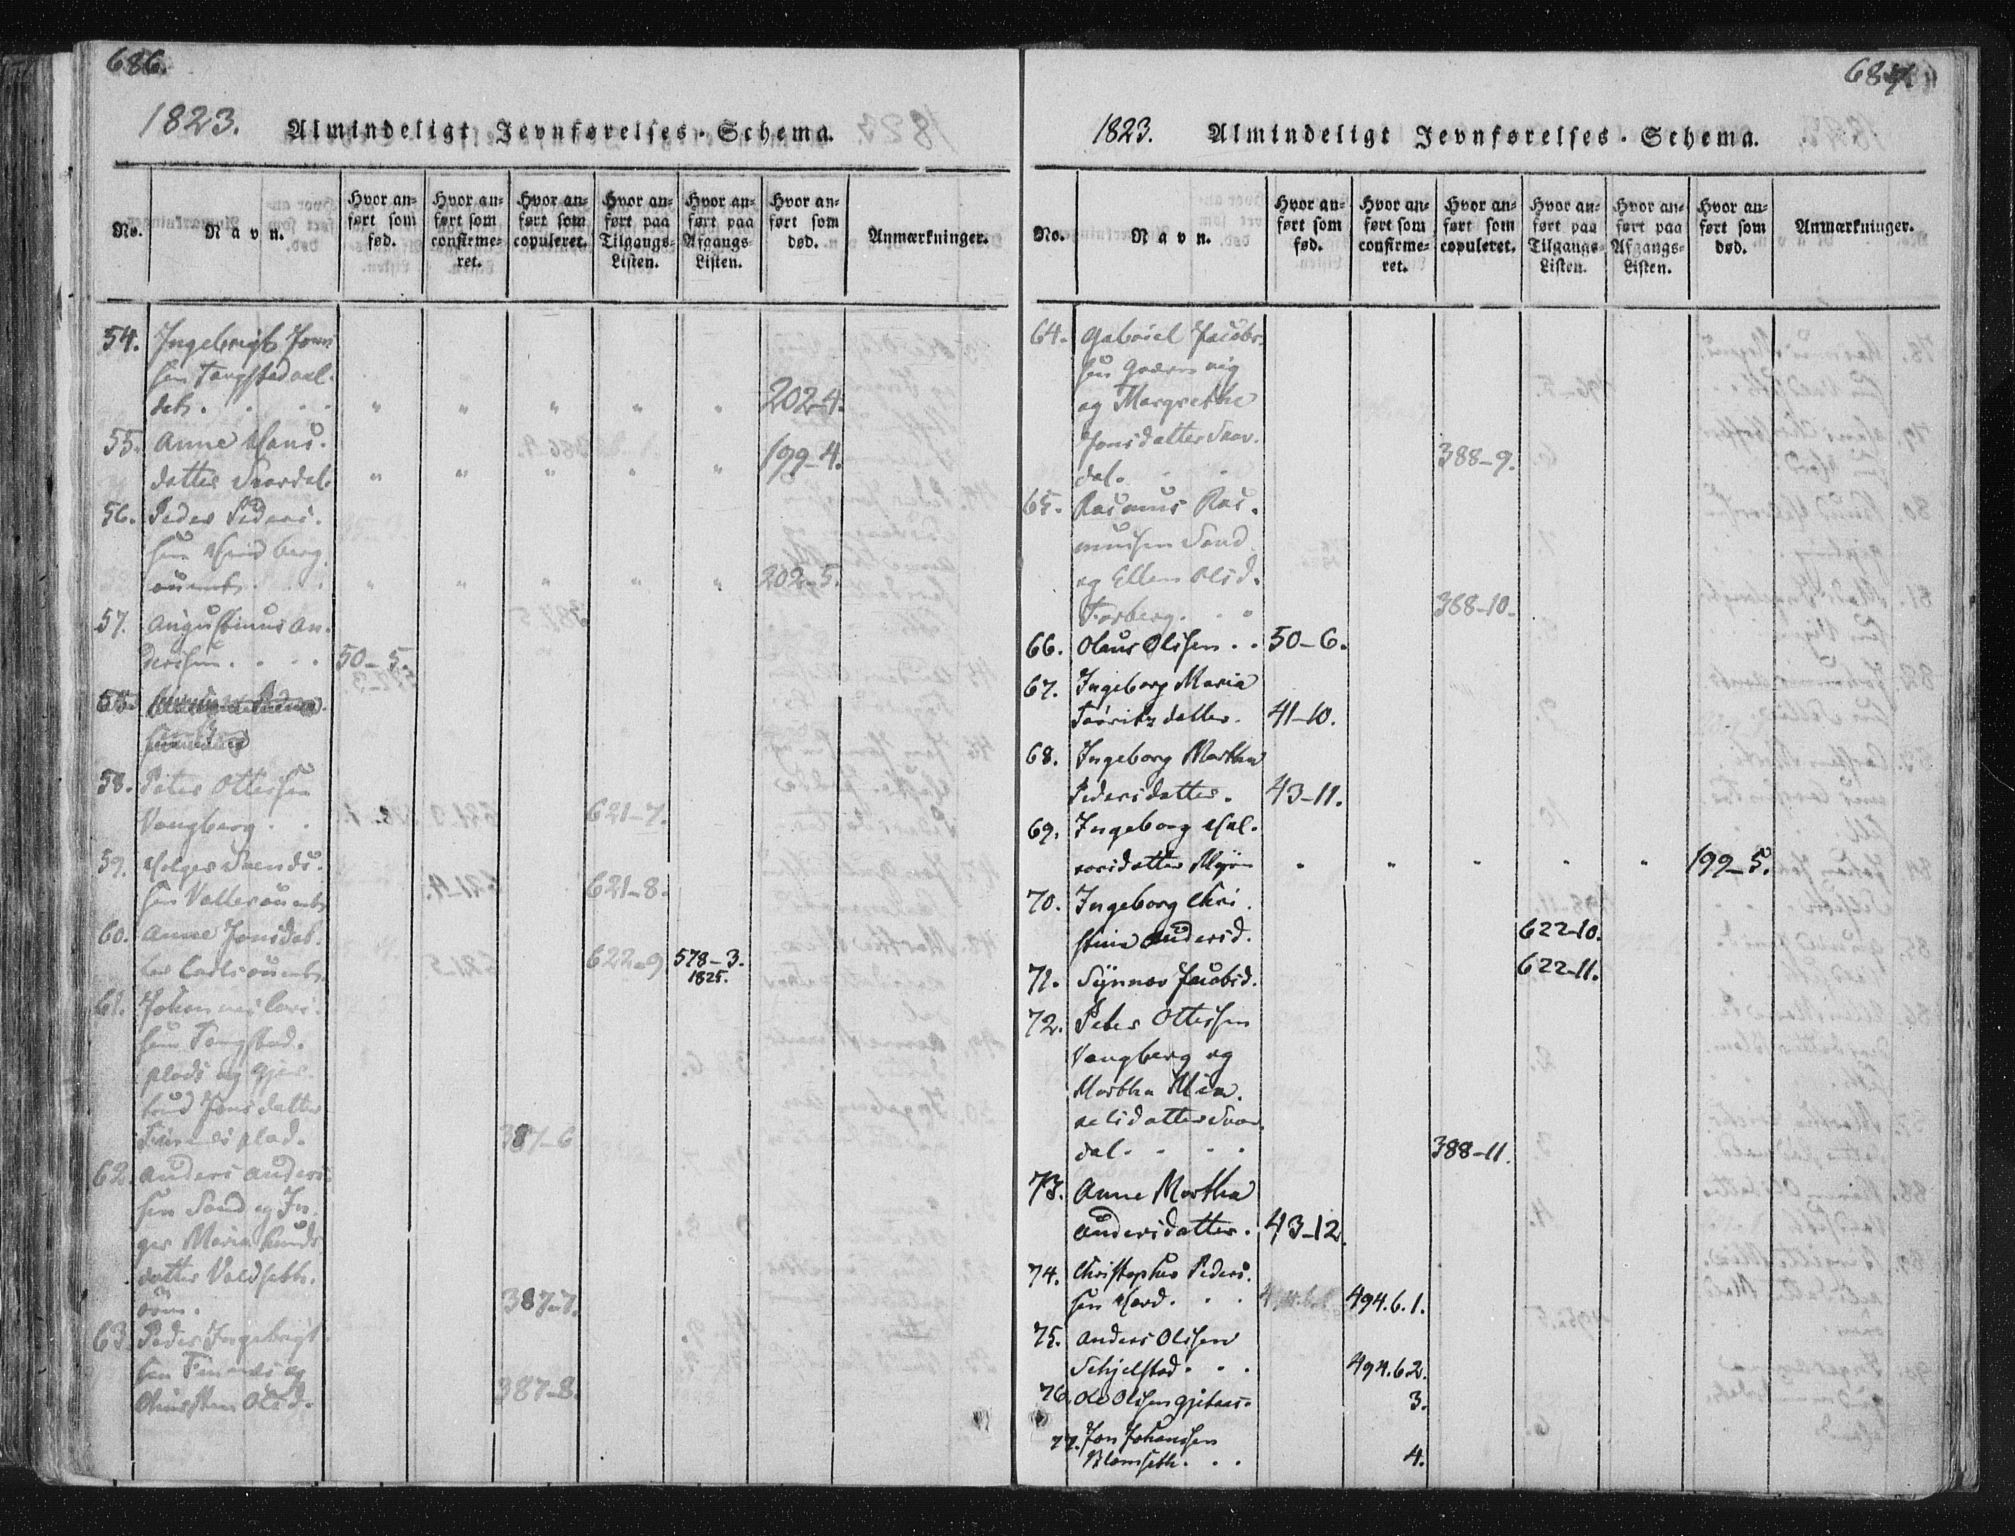 686.
1823. Almindeligt Jevnførelses-Schema.
No.
Navn.
Hvor anført som fød.
Hvor anført som confirmeret.
Hvor anført som copuleret.
Hvor anført paa Tilgangs-Listen.
Hvor anført paa Afgangs-Listen.
Hvor anført som død.
Anmærkninger.
54. Ingebrigt Jons
sen Tangstedaal
det. . . . " " " " " 202-4.
55. Anne Hans-
datter Svordal " " " " " 199-4.
56. Peder Peders-
sen
202-5.
57. Augustinus An-
dersen . . . . 50-5.
58. Peter Ottersen
Vangberg. . 621-7.
59. Holger Svends-
sen 621-8.
60. Anne Jonsdat-
ter 622-9 578-3.
1825.
61. Johannes Lars-
sen Tangstad-
plads og Gjer-
trud Jonsdatter
plad. 387-6
62. Anders Anders-
sen Sand og In-
ger Maria Knuds
datter Voldseth-
387-7.
63. Peder Ingebrigt-
sen og
Olsd. 387-8.
687.
1823. Almindeligt Jevnførelses-Schema.
No.
Navn.
Hvor anført som fød.
Hvor anført som confirmeret.
Hvor anført som copuleret.
Hvor anført paa Tilgangs-Listen.
Hvor anført paa Afgangs-Listen.
Hvor anført som død.
Anmærkninger.
64. Gabriel Jacobs-
sen
og Margrethe
Jonsdatter Svor-
dal. 388-9.
65. Rasmus Ras-
mussen Sand
og Ellen Olsd.
Forberg. . . 388-10.
66. Olaus Olssen . . 50-6.
67. Ingeborg Maria
datter. 41-10.
68. Ingeborg Martha
Pedersdatter. 43-11.
69. Ingeborg Hal-
vorsdatter Myren " " " " " 199-5.
70. Ingeborg Chri-
stina Andersd. 622-10.
71. Synnov Jacobsd. 622-11.
72. Peter Ottersen
Vangberg og
Martha Mica-
elsdatter Svor-
dal. . . . 388-11.
73. Anne Martha
Andersdatter. 43-12.
74. Christopher Peders-
sen . . . 494.6.1.
75. Anders Olssen
Schjelstad. . . 494.6.2.
76. Ole Olssen 3.
77. Jon Johanssen
Blomseth. . . 4.